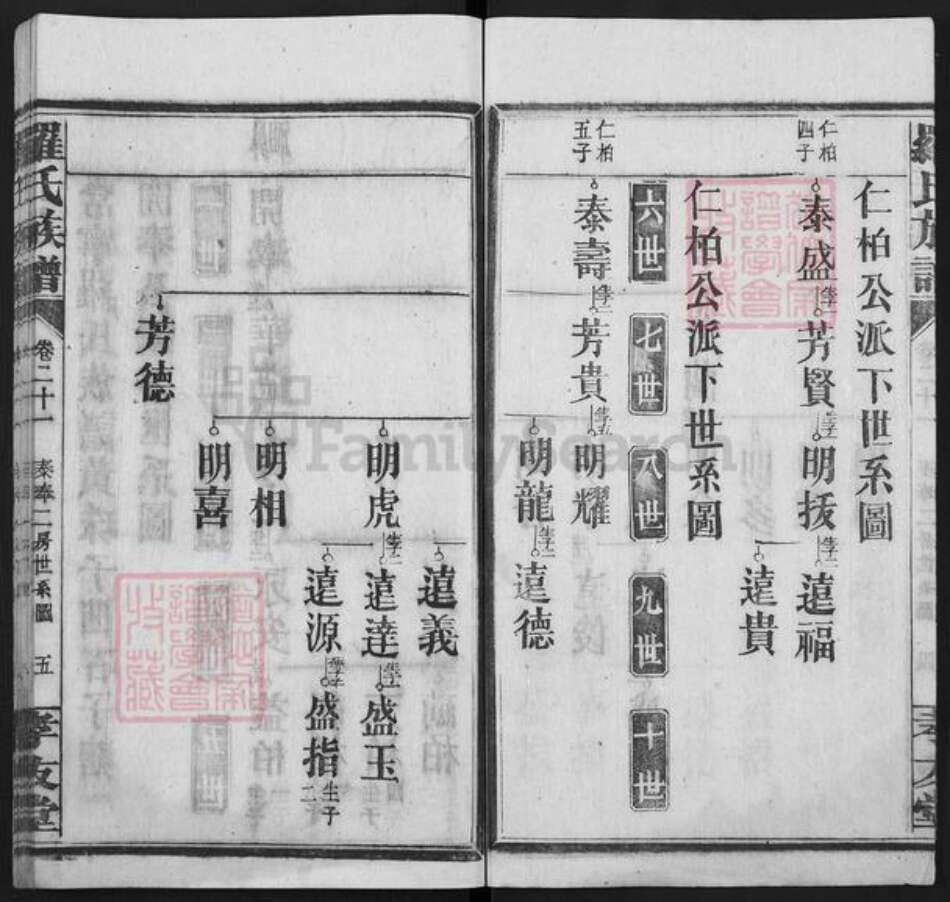 羅氏族譜
仁柏公派下世系圖
仁柏四子
泰盛
芳賢
明拔
遠福
遠貴
仁柏公派下世系圖
六世
七世
八世
九世
十世
仁柏五子
泰壽
芳貴
明耀
明龍
遠德
遠義
明虎
遠達
盛玉
遠源
盛指
生子二
明相
明喜
芳德
羅氏族譜
卷二十一
泰奉二房世系圖
五
孝友堂
FamilySearch